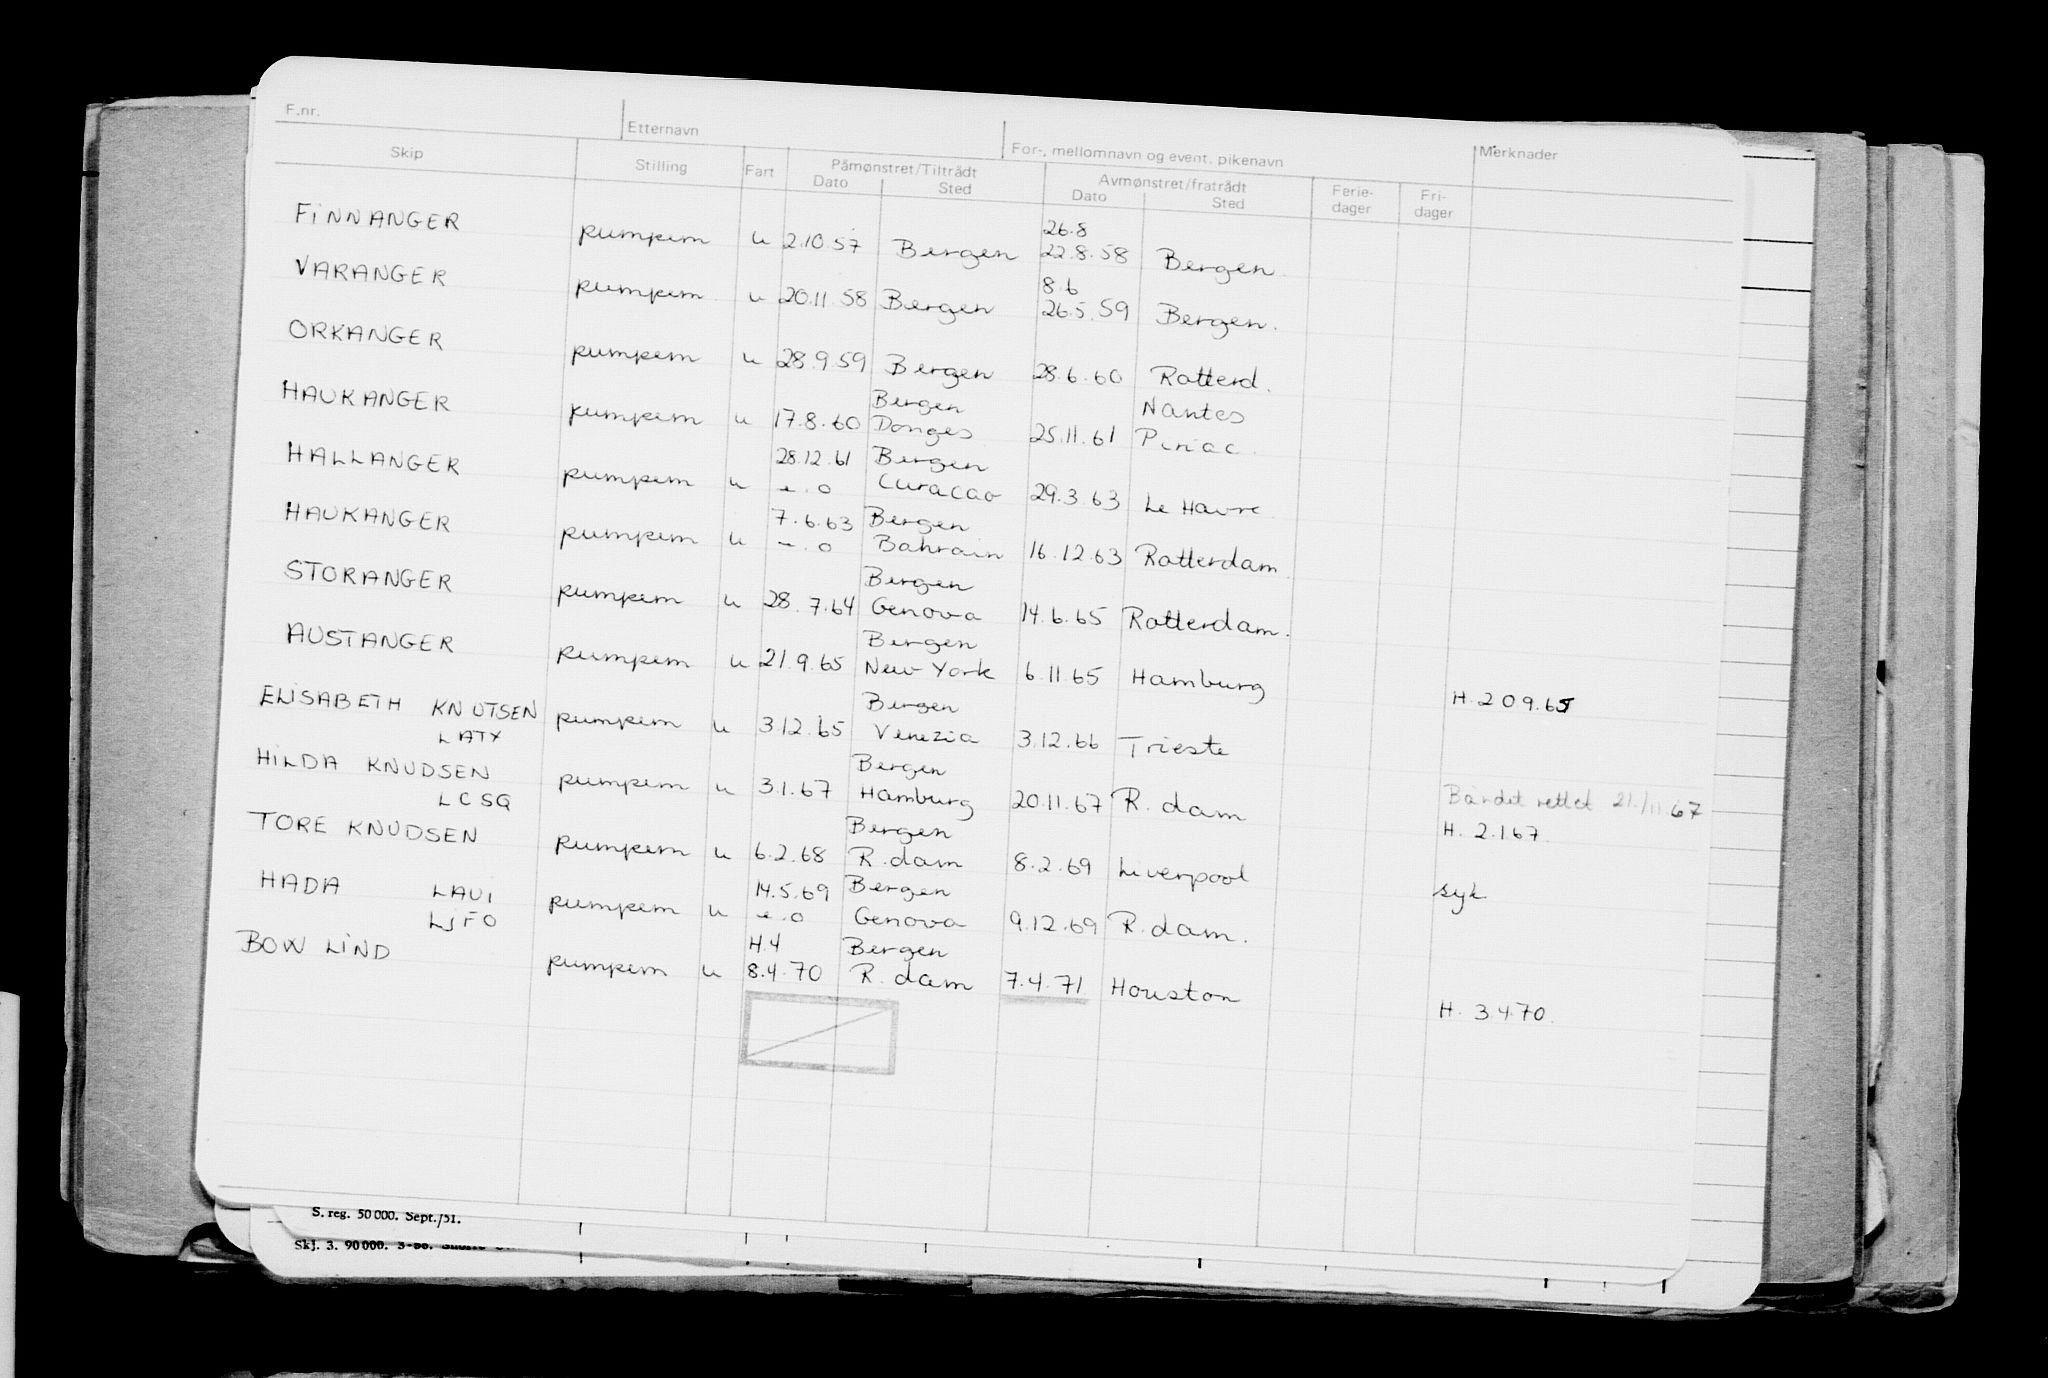 F.nr. Etternavn For-, mellomnavn og event. pikenavn Merknader
Skip Stilling Fart Påmønstret/Tiltrådt Avmønstret/fratrådt Ferie- Fri-
Dato Sted Dato Sted dager dager
26.8
FINNANGER pumpem u 2.10.57 Bergen 22.8.58 Bergen.
8.6
VARANGER pumpem u 20.11.58 Bergen 26.5.59 Bergen.
ORKANGER pumpem u 28.9.59 Bergen 28.6.60 Rotterd.
Bergen Nantes
HAUKANGER pumpem u 17.8.60 Donges 25.11.61 Piriac.
28.12.61 Bergen
HALLANGER pumpem u e.o Curacao 29.3.63 Le Havre
7.6.63 Bergen
HAUKANGER pumpem u e.o Bahrain 16.12.63 Rotterdam.
Bergen
STORANGER pumpem u 28.7.64 Genova 14.6.65 Rotterdam.
Bergen
AUSTANGER pumpem u 21.9.65 New York 6.11.65 Hamburg H. 20.9.65
Bergen
ELISABETH KNUTSEN pumpem u 3.12.65 Venezia 3.12.66 Trieste
LATX
Bergen
HILDA KNUDSEN pumpem u 3.1.67 Hamburg 20.11.67 R.dam Båndet rettet 21/11.67
LCSG H. 2.1.67.
Bergen
TORE KNUDSEN pumpem u 6.2.68 R.dam 8.2.69 Liverpool syk
14.5.69 Bergen
HADA LAUI pumpem u e.o Genova 9.12.69 R.dam.
LJFO
H.4 Bergen
BOW LIND pumpem u 8.4.70 R.dam 7.4.71 Houston H. 3.4.70.
S. reg. 50 000. Sept./51.
Skj. 3. 90 000. 3-56.